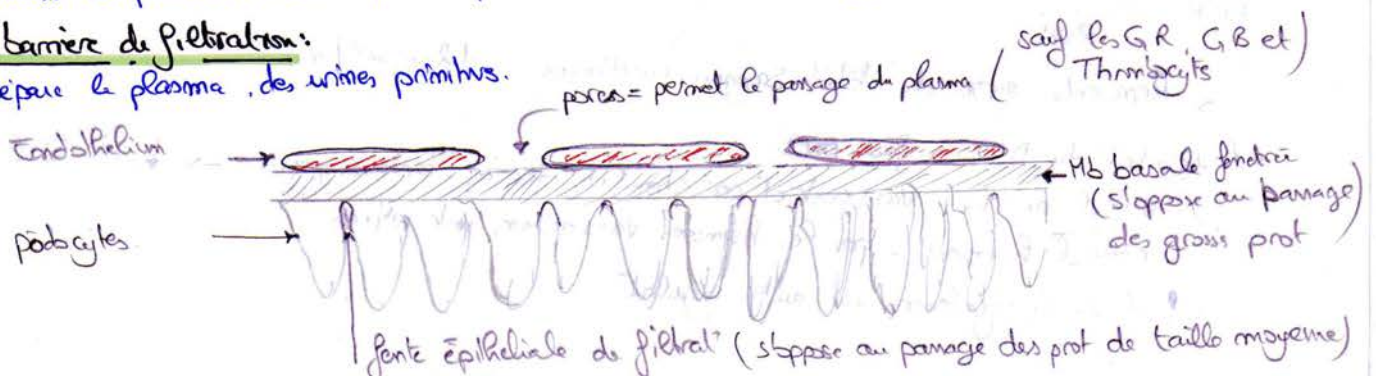 barrière de filtration:
épare le plasma, des urines primitives.
pores = permet le passage du plasma (sauf les GR, GB et Thrombocyts)
Endothelium
Mb basale fenêtrée
(s'oppose au passage)
des grosses prot
podocytes
fente épitheliale de filtrat° (s'oppose au passage des prot de taille moyenne)